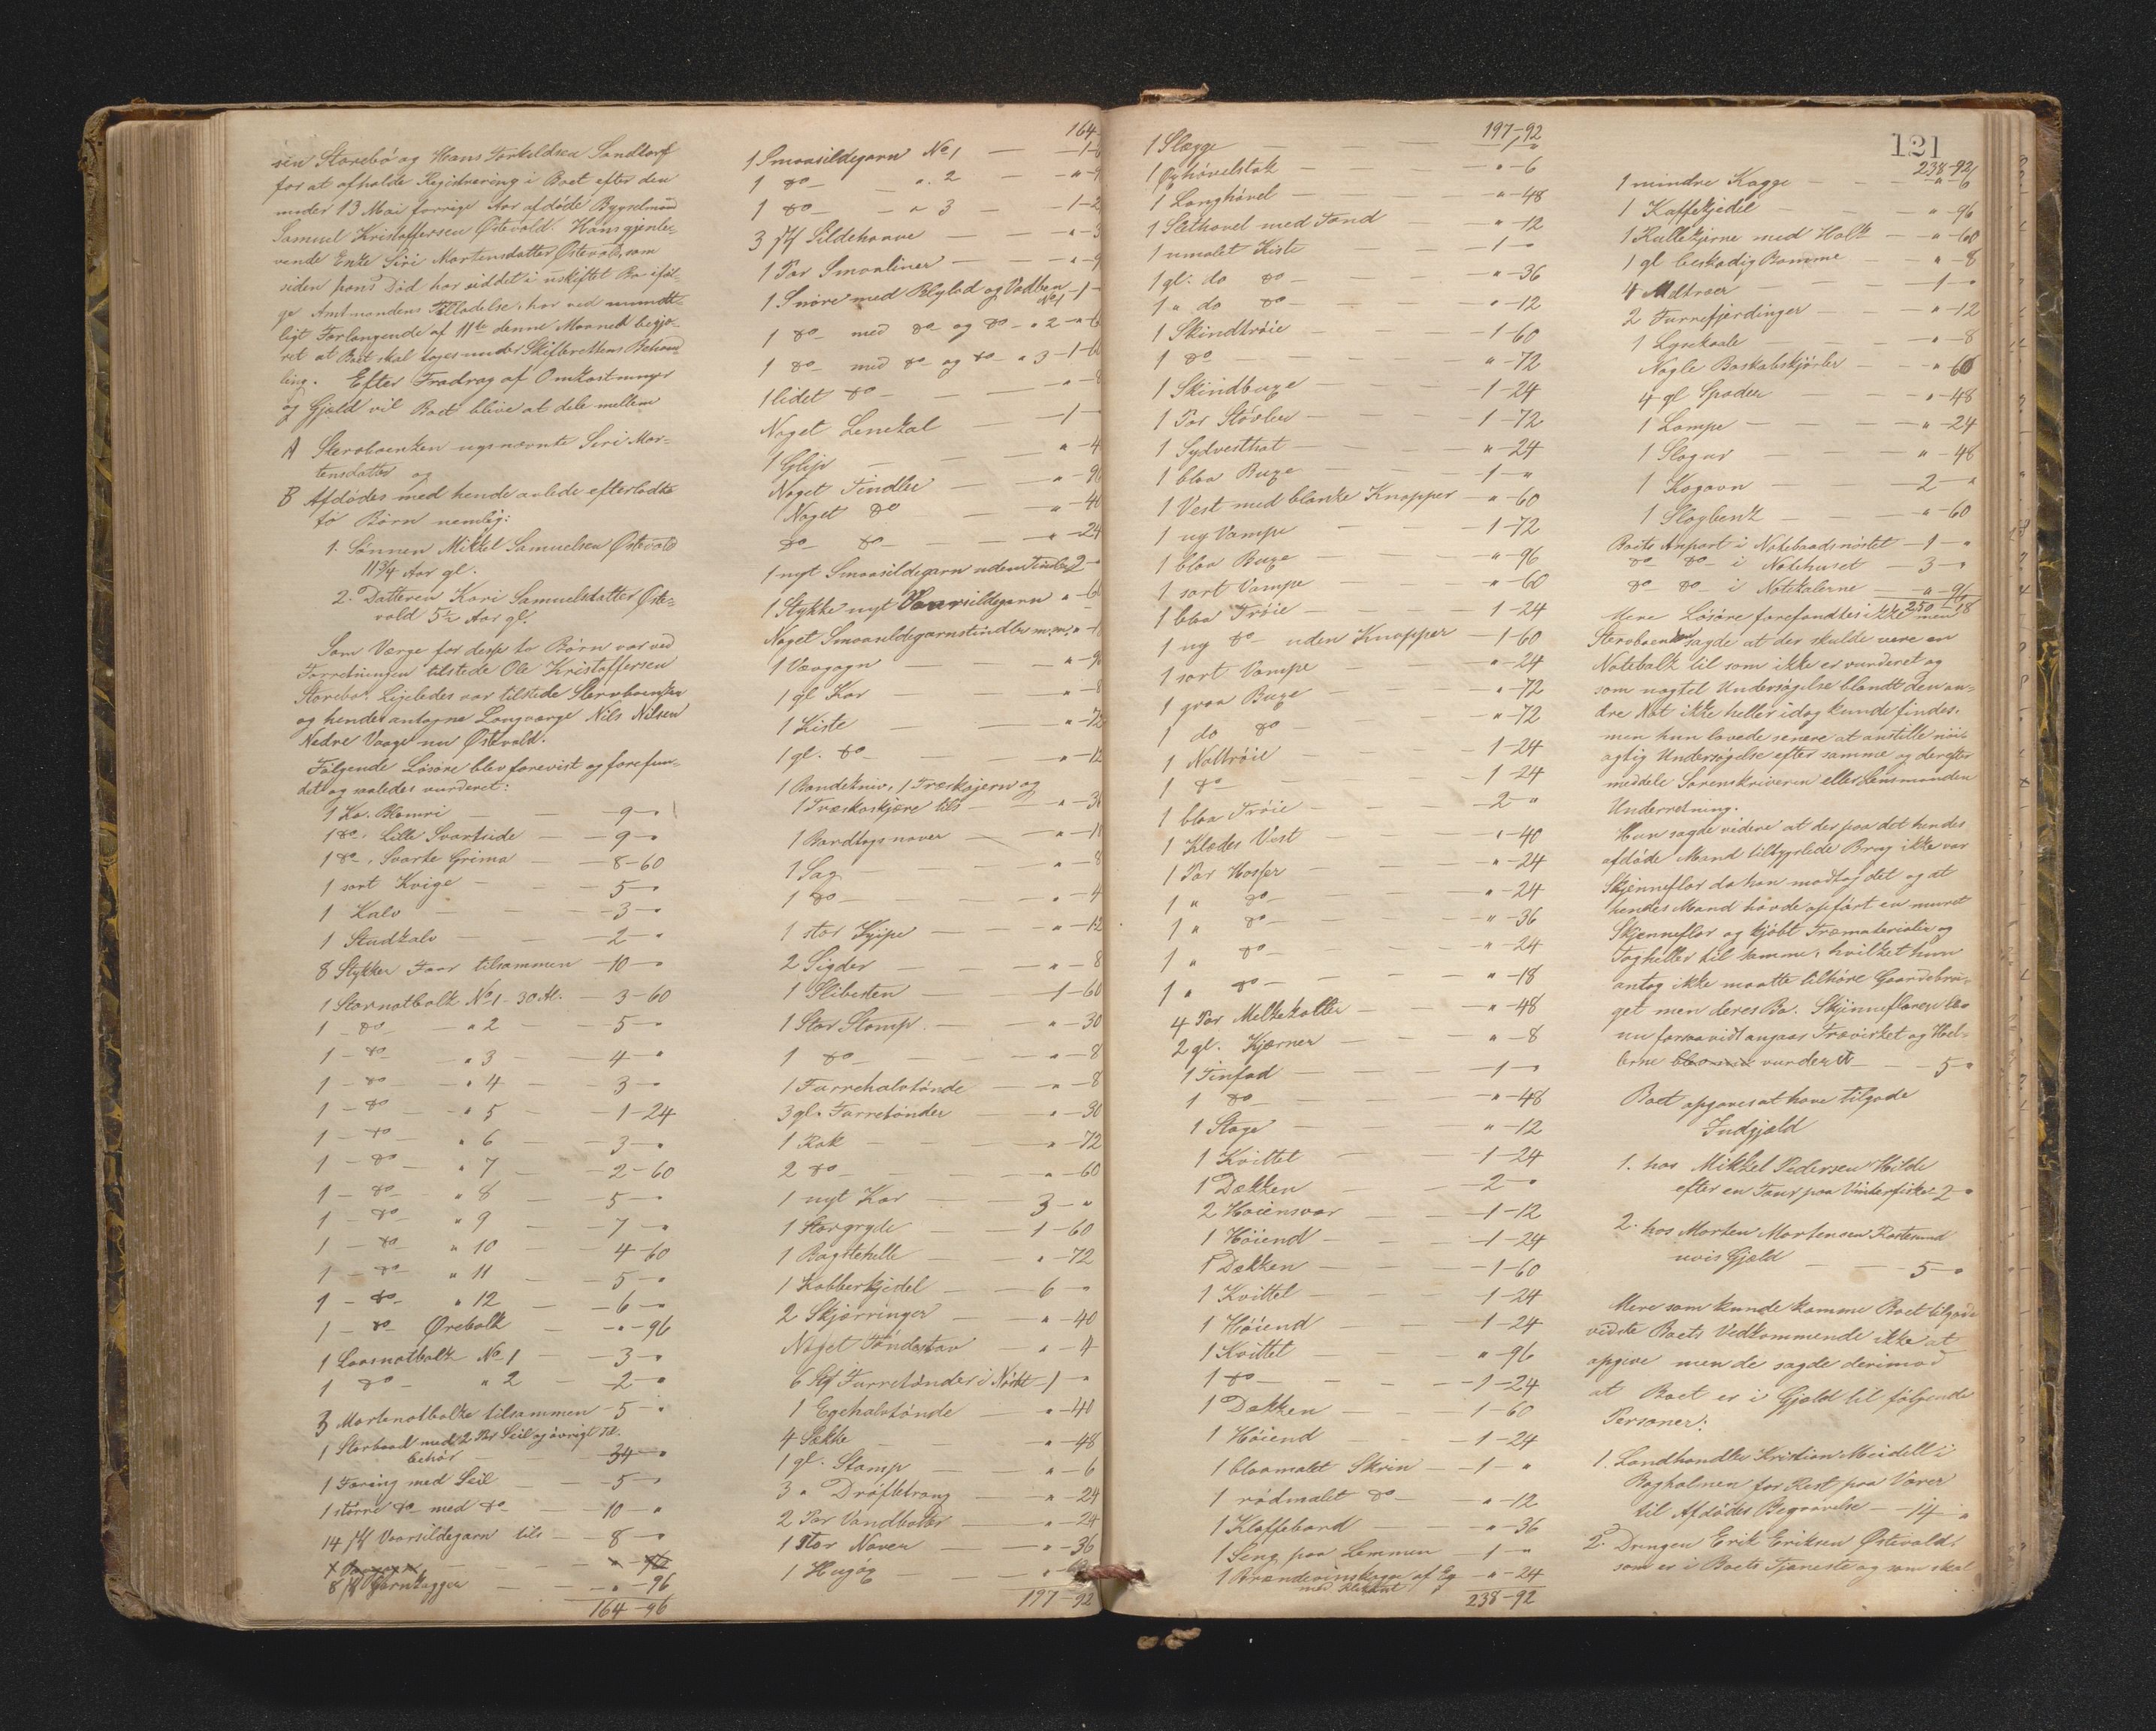 sen Storebø og Hans Torkeldsen Sandtorf
for at afholde Registrering i Boet efter den
under 13 Mai forrige Aar afdøde Bygselmand
Samuel Kristoffersen Østevold. Hans gjenle-
vende Enke Siri Mortensdatter Østevold, som
siden hans Død har siddet i uskiftet Bo iføl-
ge Amtmandens Tilladelse, har ved mundt-
ligt Forlangende af 11te denne Maaned begjæ-
ret at Boet skal tages under Skifterettens Behand-
ling. Efter Fradrag af Omkostninger
og Gjæld vil Boet blive at dele mellem
A Stervboenken nysnævnte Siri Mor-
tensdatter og
B Afdødes med hende avlede efterladte
to Børn nemlig:
1. Sønnen Mikkel Samuelsen Østevold
11 3/4 Aar gl.
2. Datteren Kari Samuelsdatter Øste-
vold 5 1/2 Aar gl.
Som Værge for disse to Børn var ved
Forretningen tilstede Ole Kristoffersen
Storebø. Ligeledes var tilstede Stervboenken
og hendes antagne Laugværge Nils Nilsen
Nedre Vaage nu Østevold.
Følgende Løsøre blev forevist og forefun-
det og saaledes vurderet:
1 Ko. Blomri — 9 - "
1 do, Lille Svartside — 9 - "
1 do, Svarte Grima — 8-60
1 sort Kvige — 5 - "
1 Kalv — 3 - "
1 Studkalv — 2 - "
8 Stykker Faar tilsammen — 10 - "
1 Stornotbolk No 1 - 30 Al. — 3-60
1 - do - " 2 — 5 - "
1 - do - " 3 — 4 - "
1 - do - " 4 — 3 - "
1 - do - " 5 — 1-24
1 - do - " 6 — 3 - "
1 - do - " 7 — 2-60
1 - do - " 8 — 5 - "
1 - do - " 9 — 7 - "
1 - do - " 10 — 4-60
1 - do - " 11 — 5 - "
1 - do - " 12 — 6 - "
1 - do - Ørebolk — " - 96
1 Laasnotbolk No 1 — 3 - "
1 do - " 2 — 2 - "
3 Mortenotbolke tilsammen — 5 - "
1 Storbaad med 2 Par Seil og øvrigt Til-
behør — 34 - "
1 Færing med Seil — 5 - "
1 større do med do — 10 - "
14 Stk Vaarsildegarn tils — 8 - "
8 Stk Garnkagger — " - 96
164-96
164-
1 Smaasildegarn No 1 — 1-6
1 do - " 2 — " - 9
1 do - " 3 — 1-2
3 Stk Sildehaave — " - 3
1 Par Smaaliner — " - 9
1 Snøre med Blylod og Vadben No 1 — 1 -
1 do med do og do - " 2 — " - 6
1 do med do og do " 3 — 1-6
1 lidet do — " - 8
Noget Linekal — 1 -
1 Glip — " - 4
Noget Tindler — " - 96
Noget do — " - 40
do do — " - 24
1 nyt Smaasildegarn uden Tindler 2 -
1 Stykke nyt Vaarsildegarn " - 6
Noget Smaasildegarnstindler m.m. " - 1
1 Vævgogn — " - 9
1 gl Kar — " - 8
1 Kiste — " - 72
1 gl. do — " - 12
1 Bandekniv, 1 Træskojern og
1 Træskoskjære tils — " - 36
1 Bandtagsnaver — " - 1
1 Sag — " - 8
1 do — " - 4
1 stor Kjipe — " - 12
2 Sigder — " - 8
1 Slibesten — 1-60
1 Stor Stamp — " - 30
1 do — " - 8
1 Furrehalvtønde — " - 8
3 gl. Furretønder — " - 30
1 Rok — " - 72
2 do — " - 60
1 nyt Kar — 3 - "
1 Storgryde — 1-60
1 Bagstehelle — " - 72
1 Kobberkjedel — 6 - "
2 Skjørringer — " - 40
Noget Tøndestav — " - 4
6 Stk Furretønder i Nøstet — 1 - "
1 Egehalvtønde — " - 40
4 Sække — " - 48
1 gl. Stamp — " - 6
3 " Drøfteltraug — " - 24
2 Par Vandbøtter — " - 24
1 Stor Naver — " - 36
1 Hugjøg — "
197-92
197-92
1 Slægge — 1 - "
1 Øxhøvelstok — " - 6
1 Langhøvel — " - 48
1 Slethøvel med Tand — " - 12
1 umalet Kiste — 1 - "
1 gl. do do — " - 36
1 " do do — " - 12
1 Skindtrøie — 1-60
1 do — " - 72
1 Skindbuxe — 1-24
1 Par Støvler — 1-72
1 Sydvesthat — " - 24
1 blaa Buxe — 1 - "
1 Vest med blanke Knapper — " - 60
1 ny Vampe — 1-72
1 blaa Buxe — " - 96
1 sort Vampe — " - 60
1 blaa Trøie — 1-24
1 ny do uden Knapper — 1-60
1 sort Vampe — " - 24
1 graa Buxe — " - 72
1 do do — " - 72
1 Nattrøie — 1-24
1 do — 1-24
1 blaa Trøie — 2 - "
1 Klædes Vest — " - 40
1 Par Hoser — " - 24
1 " do — " - 24
1 " do — " - 36
1 " do — " - 24
1 " do — " - 18
4 Par Melkekoller — " - 48
2 gl. Kjærner — " - 8
1 Tinfad — 1 - "
1 do — " - 48
1 Stage — " - 12
1 Kvittel — 1-24
1 Dækken — 2 - "
2 Høiensvar — 1-12
1 Høiend — 1-24
1 Dækken — 1-60
1 Kvittel — 1-24
1 Høiend — 1-24
1 Kvittel — " - 96
1 do — 1-24
1 Dækken — 1-60
1 Høiend — 1-24
1 blaamalet Skrin — 1 - "
1 rødmalet do — " - 12
1 Klaffebord — " - 36
1 Seng paa Lemmen — 1 - "
1 Brændevinskagge af Eg — " - 24
238-92
121
238-92
1 mindre Kagge — " - 6
1 Kaffekjedel — " - 96
1 Rullekjerne med Holk — " - 60
1 gl beskadig Bomme — " - 8
4 Meltraer — 1 - "
2 Furrefjerdinger — " - 12
1 Lysekaale — " - 8
Nogle Boskabskjørler — " - 60
4 gl Spader — " - 48
1 Lampe — " - 24
1 Slagur — " - 48
1 Kogovn — 2 - "
1 Slagbenk — " - 60
Boets Anpart i Notebaadsnøstet — 1 - "
do do i Notehuset — 3 - "
do do i Notekalerne — " - 96
250-18
Mere Løsøre forefandtes ikke men
Stervboenken sagde at der skulde være en
Notebolk til som ikke er vurderet og
som uagtet Undersøgelse blandt den an-
dre Not ikke heller idag kunde findes.
men hun lovede senere at anstille nøi-
agtig Undersøgelse efter samme og derefter
meddele Sorenskriveren eller Lensmanden
Underretning.
Hun sagde videre at der paa det hendes
afdøde Mand tilbygslede Brug ikke var
Skjenneflor da han modtog det og at
hendes Mand havde opført en muret
Skjenneflor og kjøbt Træmaterialier og
Tagheller til samme, hvilket hun
antog ikke maatte tilhøre Gaardsbru-
get men deres Bo. Skjenneflaren blev
nu forsaavidt angaar Trævirket og Hel-
lerne vurderet — 5 - "
Boet opgaves at have tilgode
Indgjæld
1. hos Mikkel Pedersen Hilde
efter en Taur paa Vinterfiske 2 - "
2. hos Morten Mortensen Rostesund
uvis Gjæld — 5 - "
Mere som kunde komme Boet tilgode
vidste Boets Vedkommende ikke at
opgive men de sagde derimod
at Boet er i Gjæld til følgende
Personer:
1. Landhandler Kristian Meidell i
Bagholmen for Rest paa Varer
til Afdødes Begravelse — 14 - "
2. Drengen Erik Eriksen Østevold.
som er i Boets Tjeneste og som skal